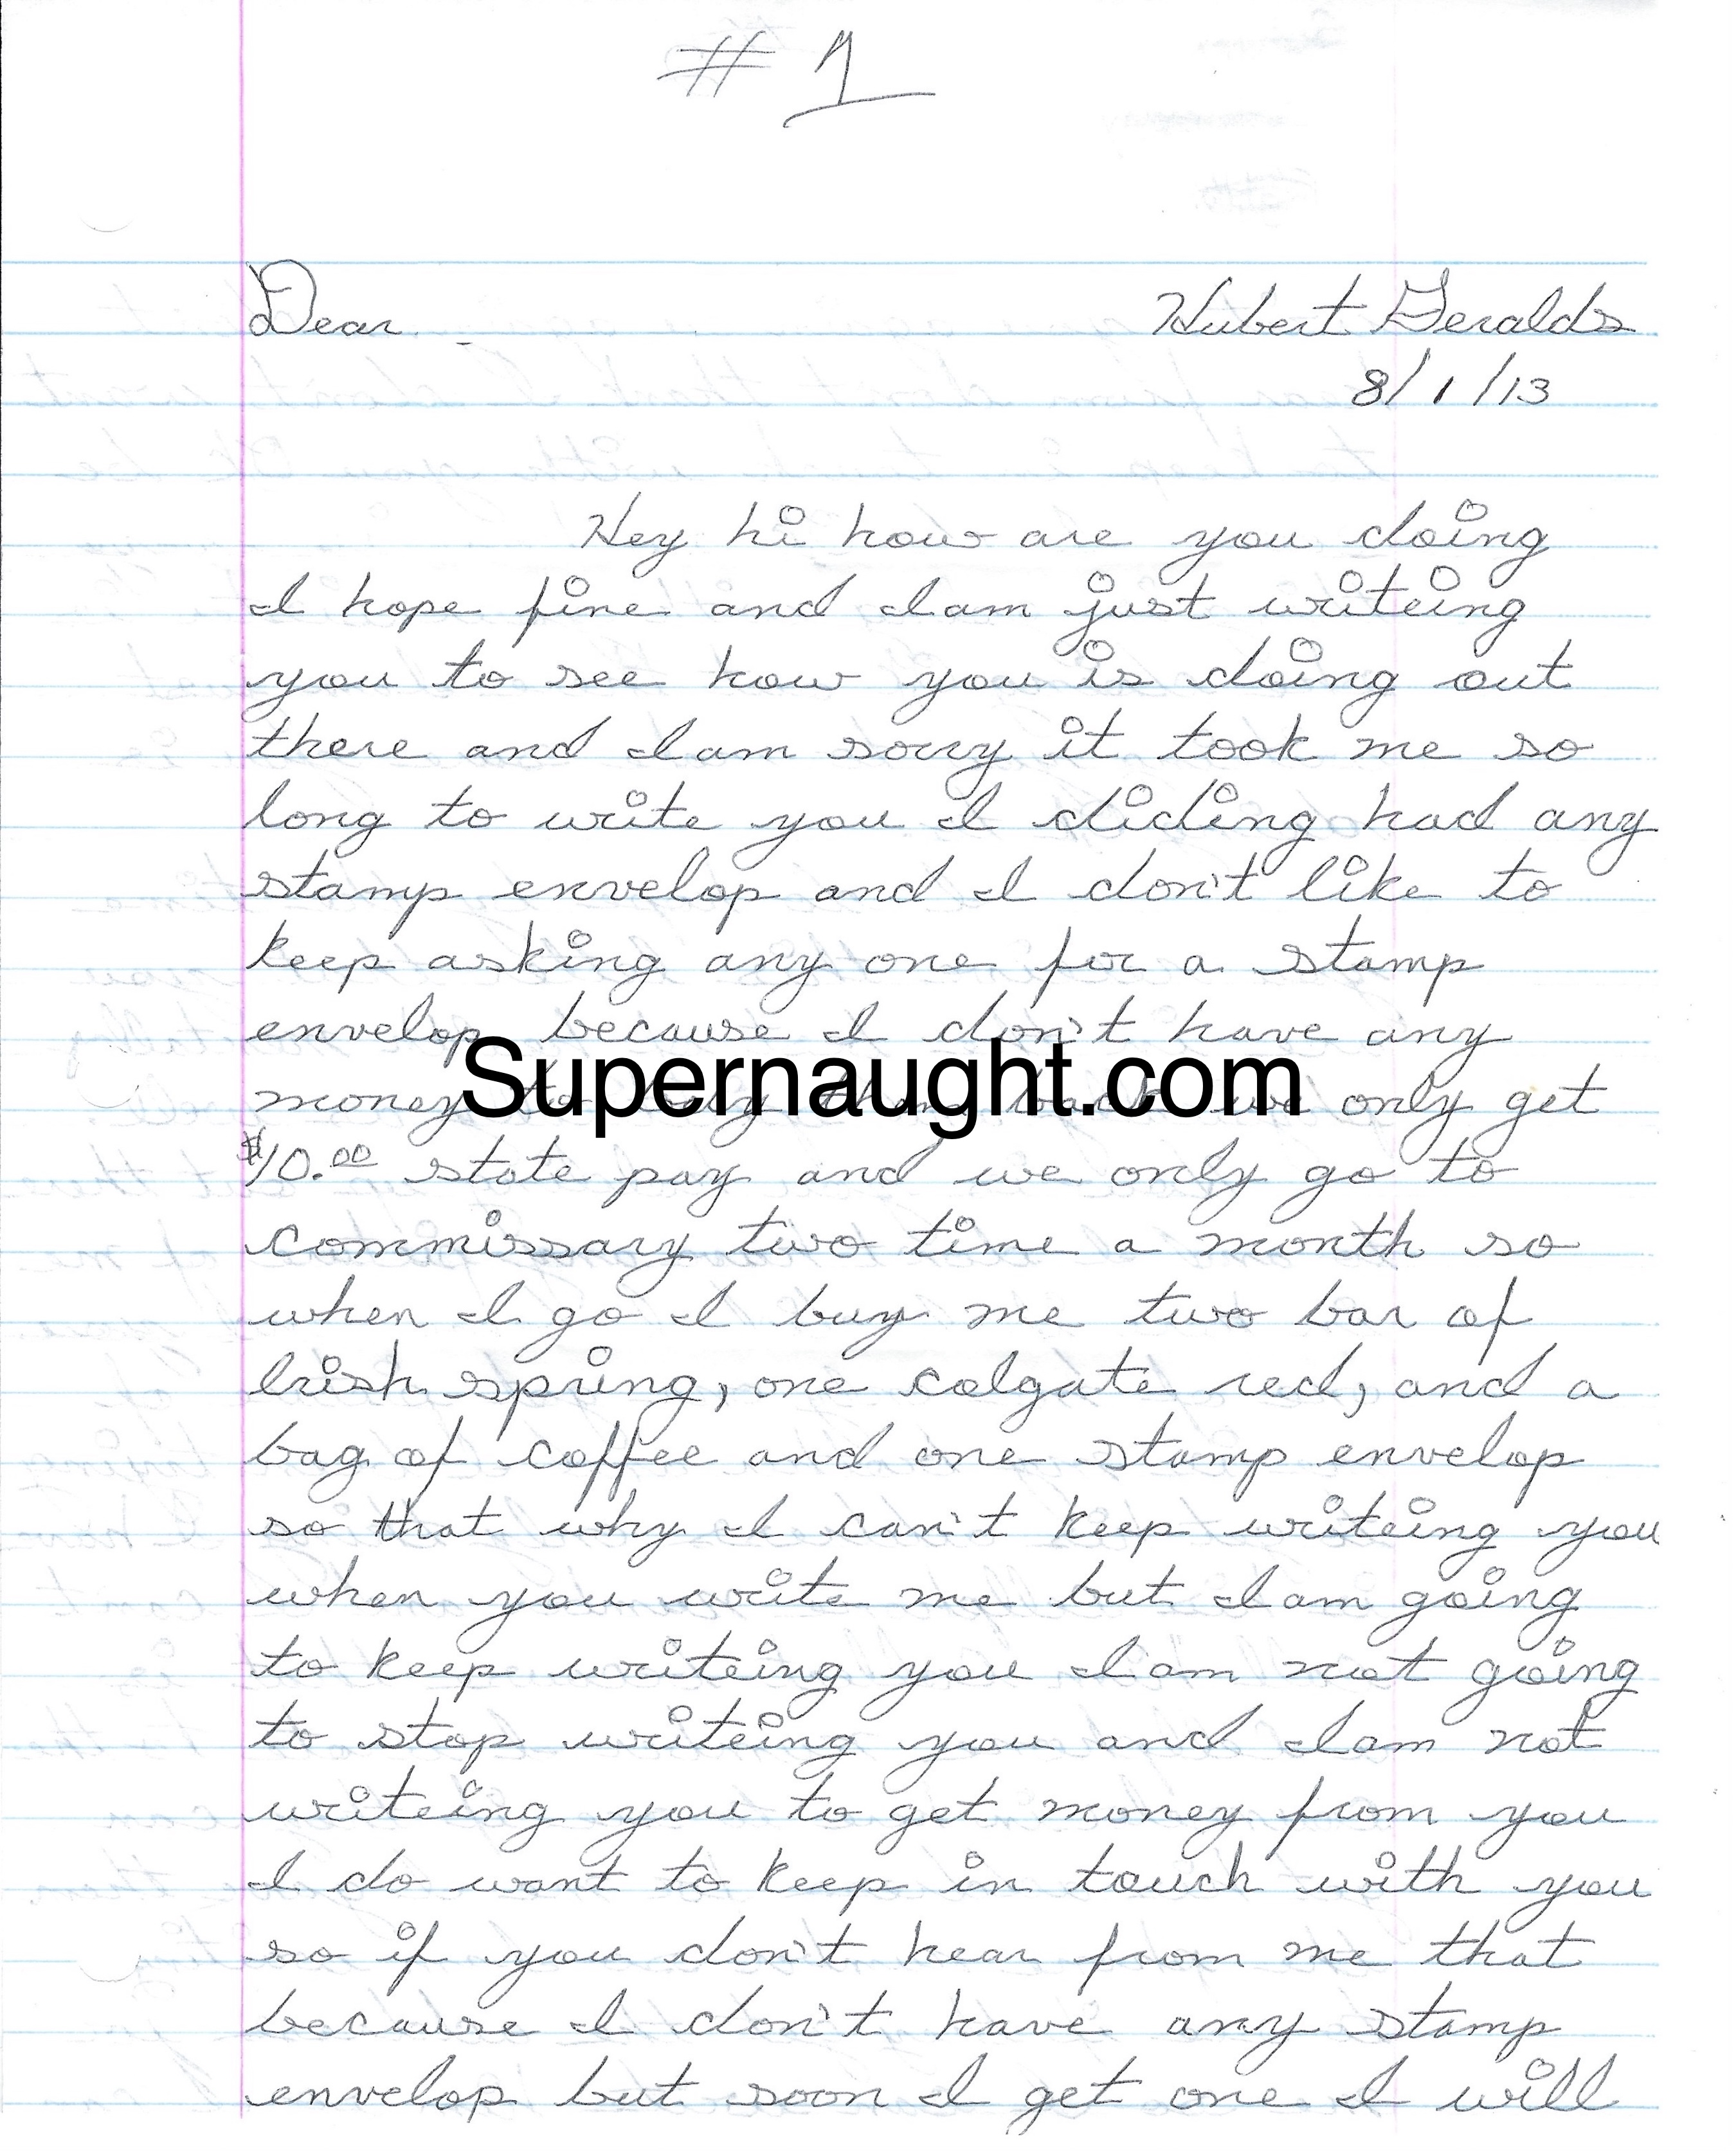 # 1
Dear Hubert Geralds
8/1/13
Hey hi how are you doing
I hope fine and I am just writeing
you to see how you is doing out
there and I am sorry it took me so
long to write you I diding had any
stamp envelop and I don't like to
keep asking any one for a stamp
envelop because I don't have any
Supernaught.com
money to buy them back we only get
$10.00 state pay and we only go to
commissary two time a month so
when I go I buy me two bar of
Irish spring, one colgate red, and a
bag of coffee and one stamp envelop
so that why I can't keep writeing you
when you write me but I am going
to keep writeing you I am not going
to stop writeing you and I am not
writeing you to get money from you
I do want to keep in touch with you
so if you don't hear from me that
because I don't have any stamp
envelop but soon I get one I will